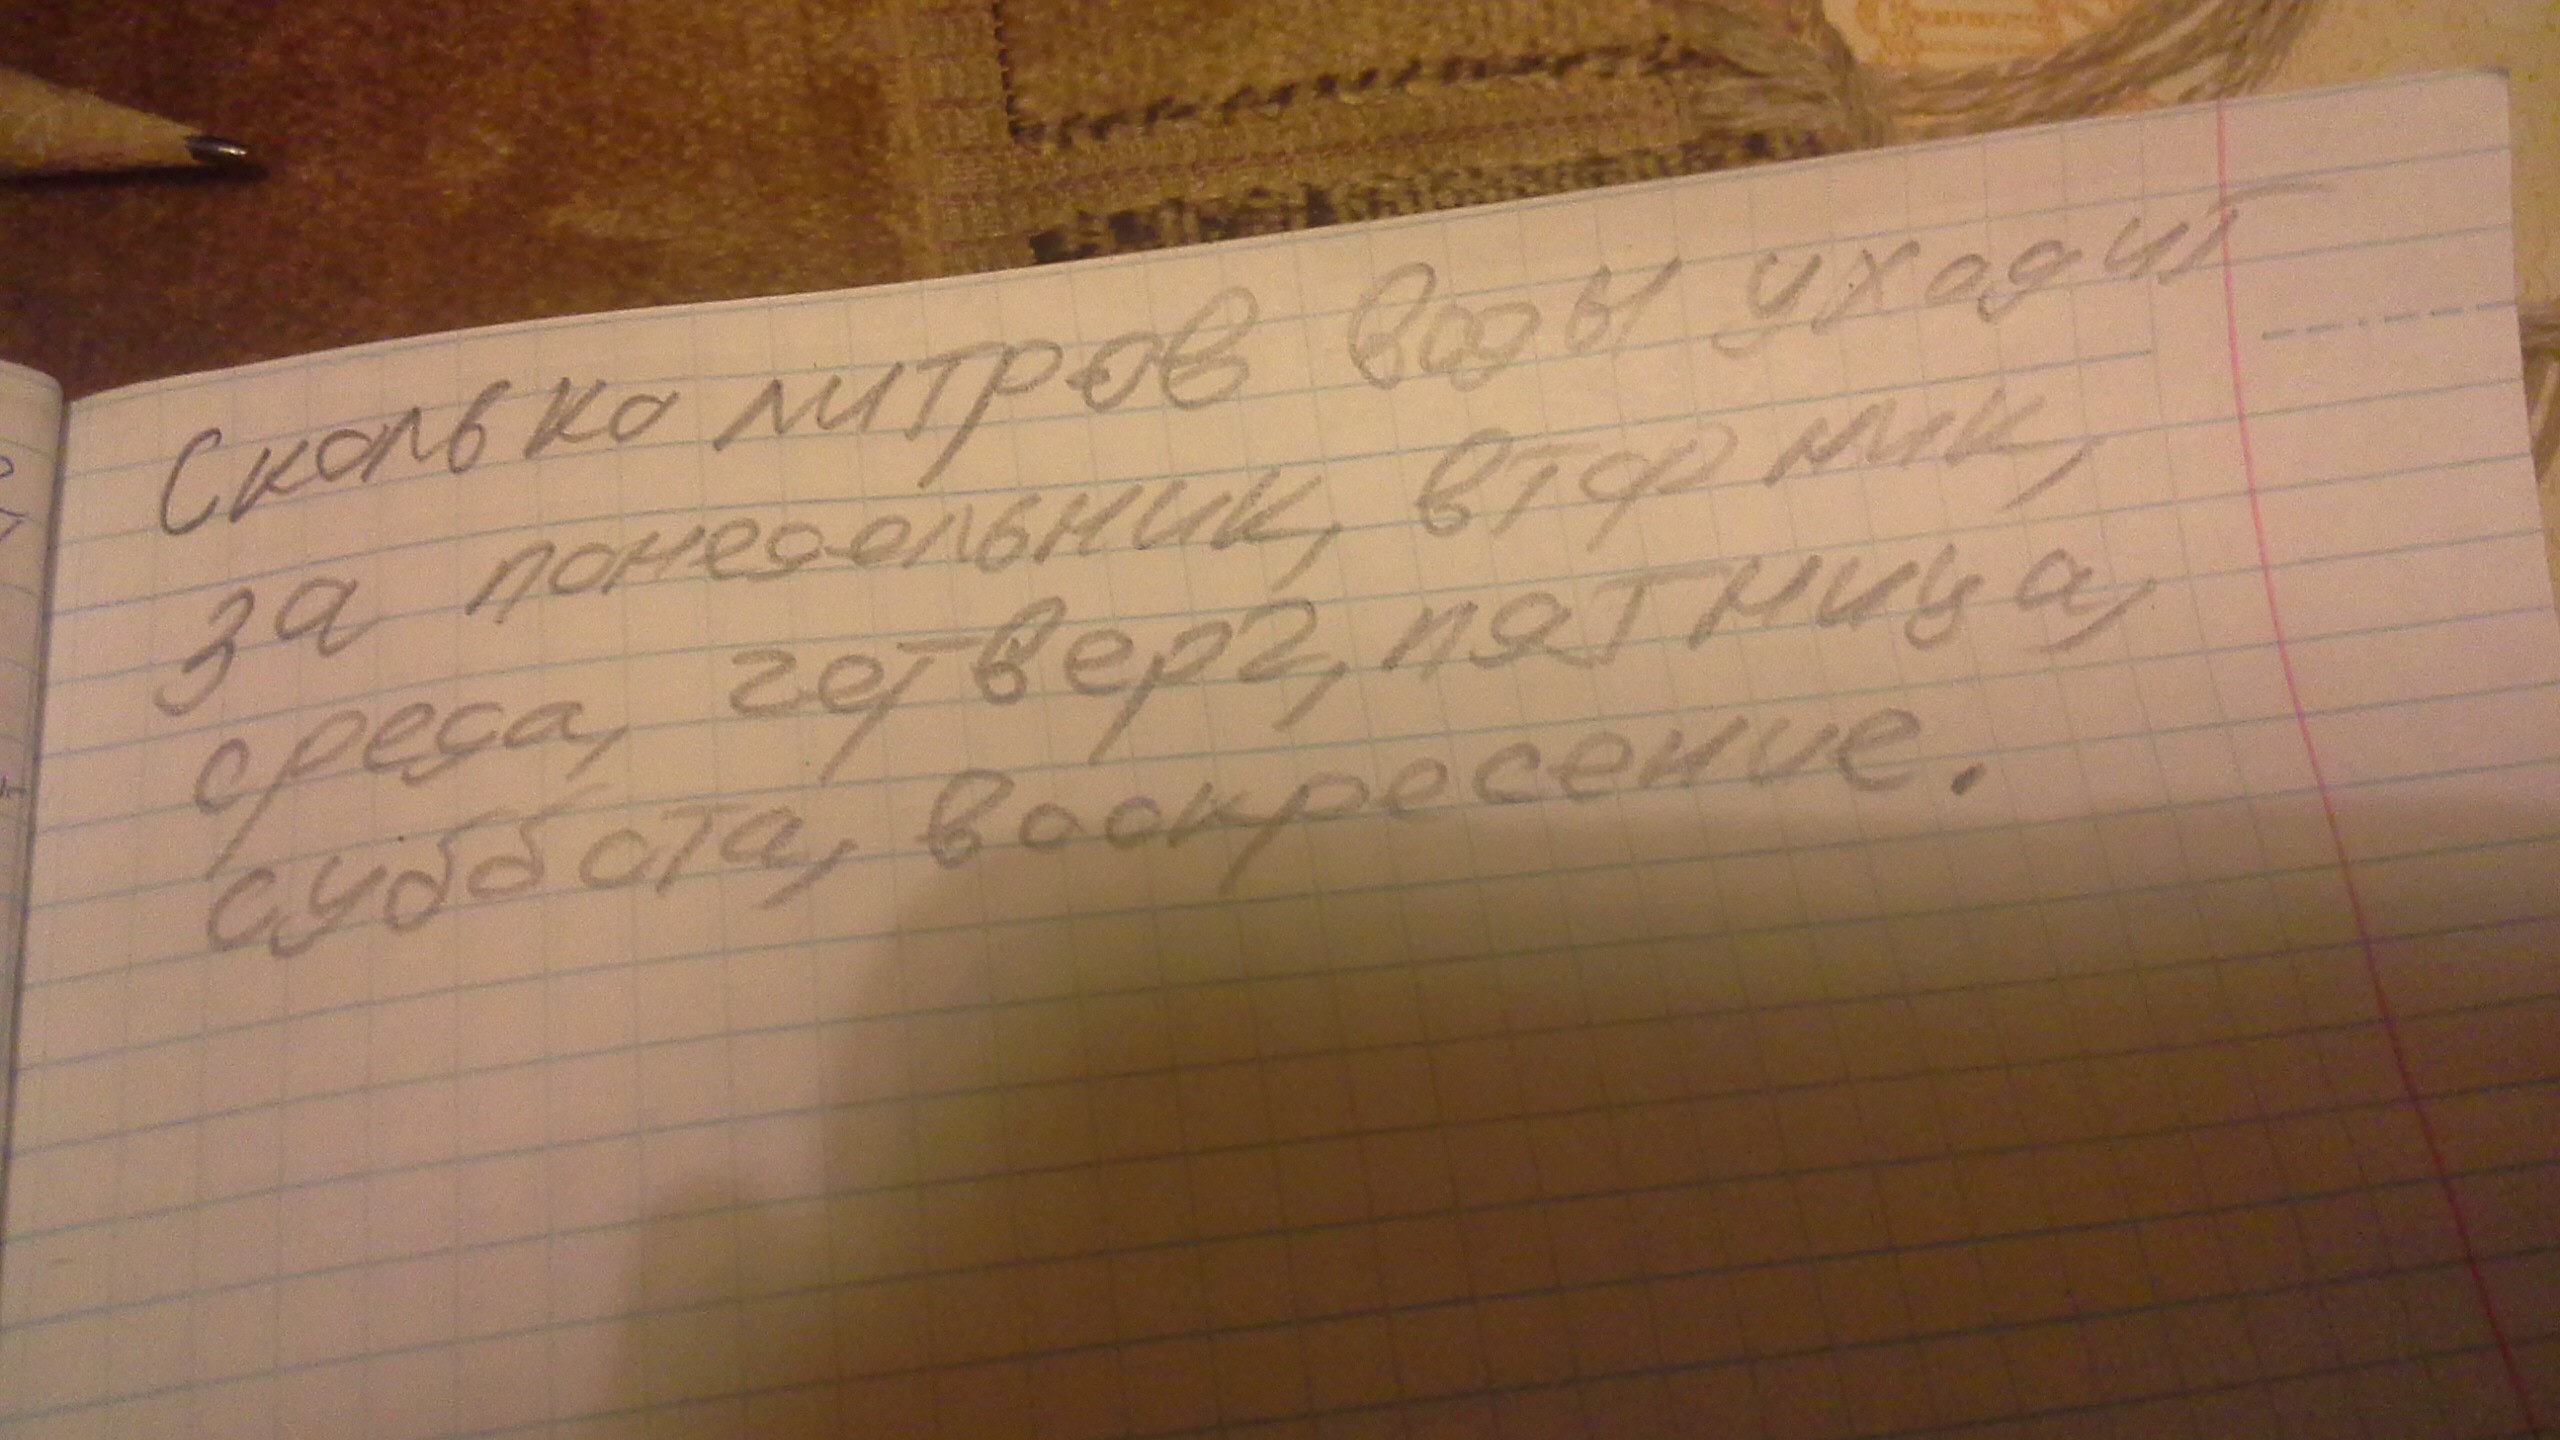 Сколько литров воды уходит
за понедельник, вторник,
среда, четверг, пятница,
суббота, воскресение.